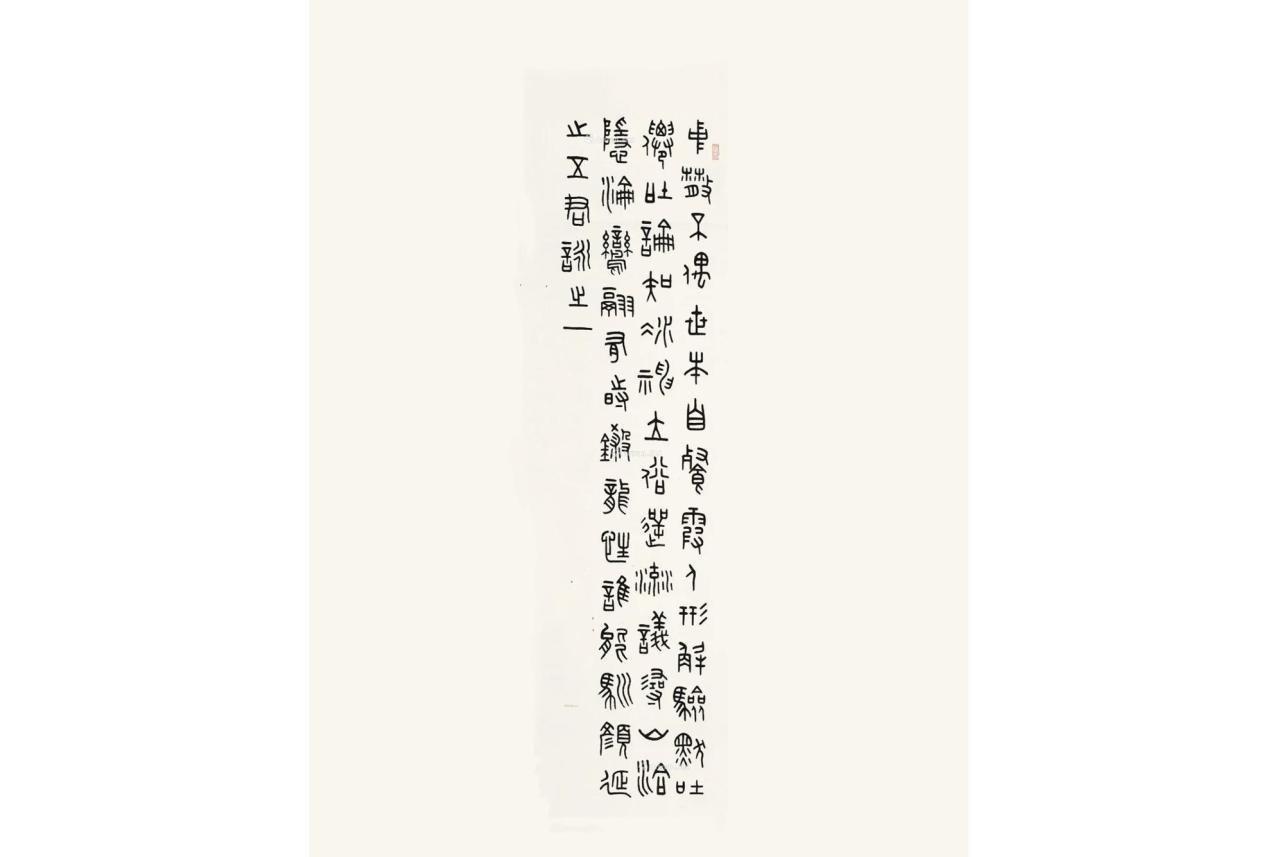 中散不偶世本自餐霞人形解驗默吐
僊吐論知凝神立俗迕流議尋山洽
隱淪鸞翮有時鎩龍性誰能馴顏延
之五君詠之一